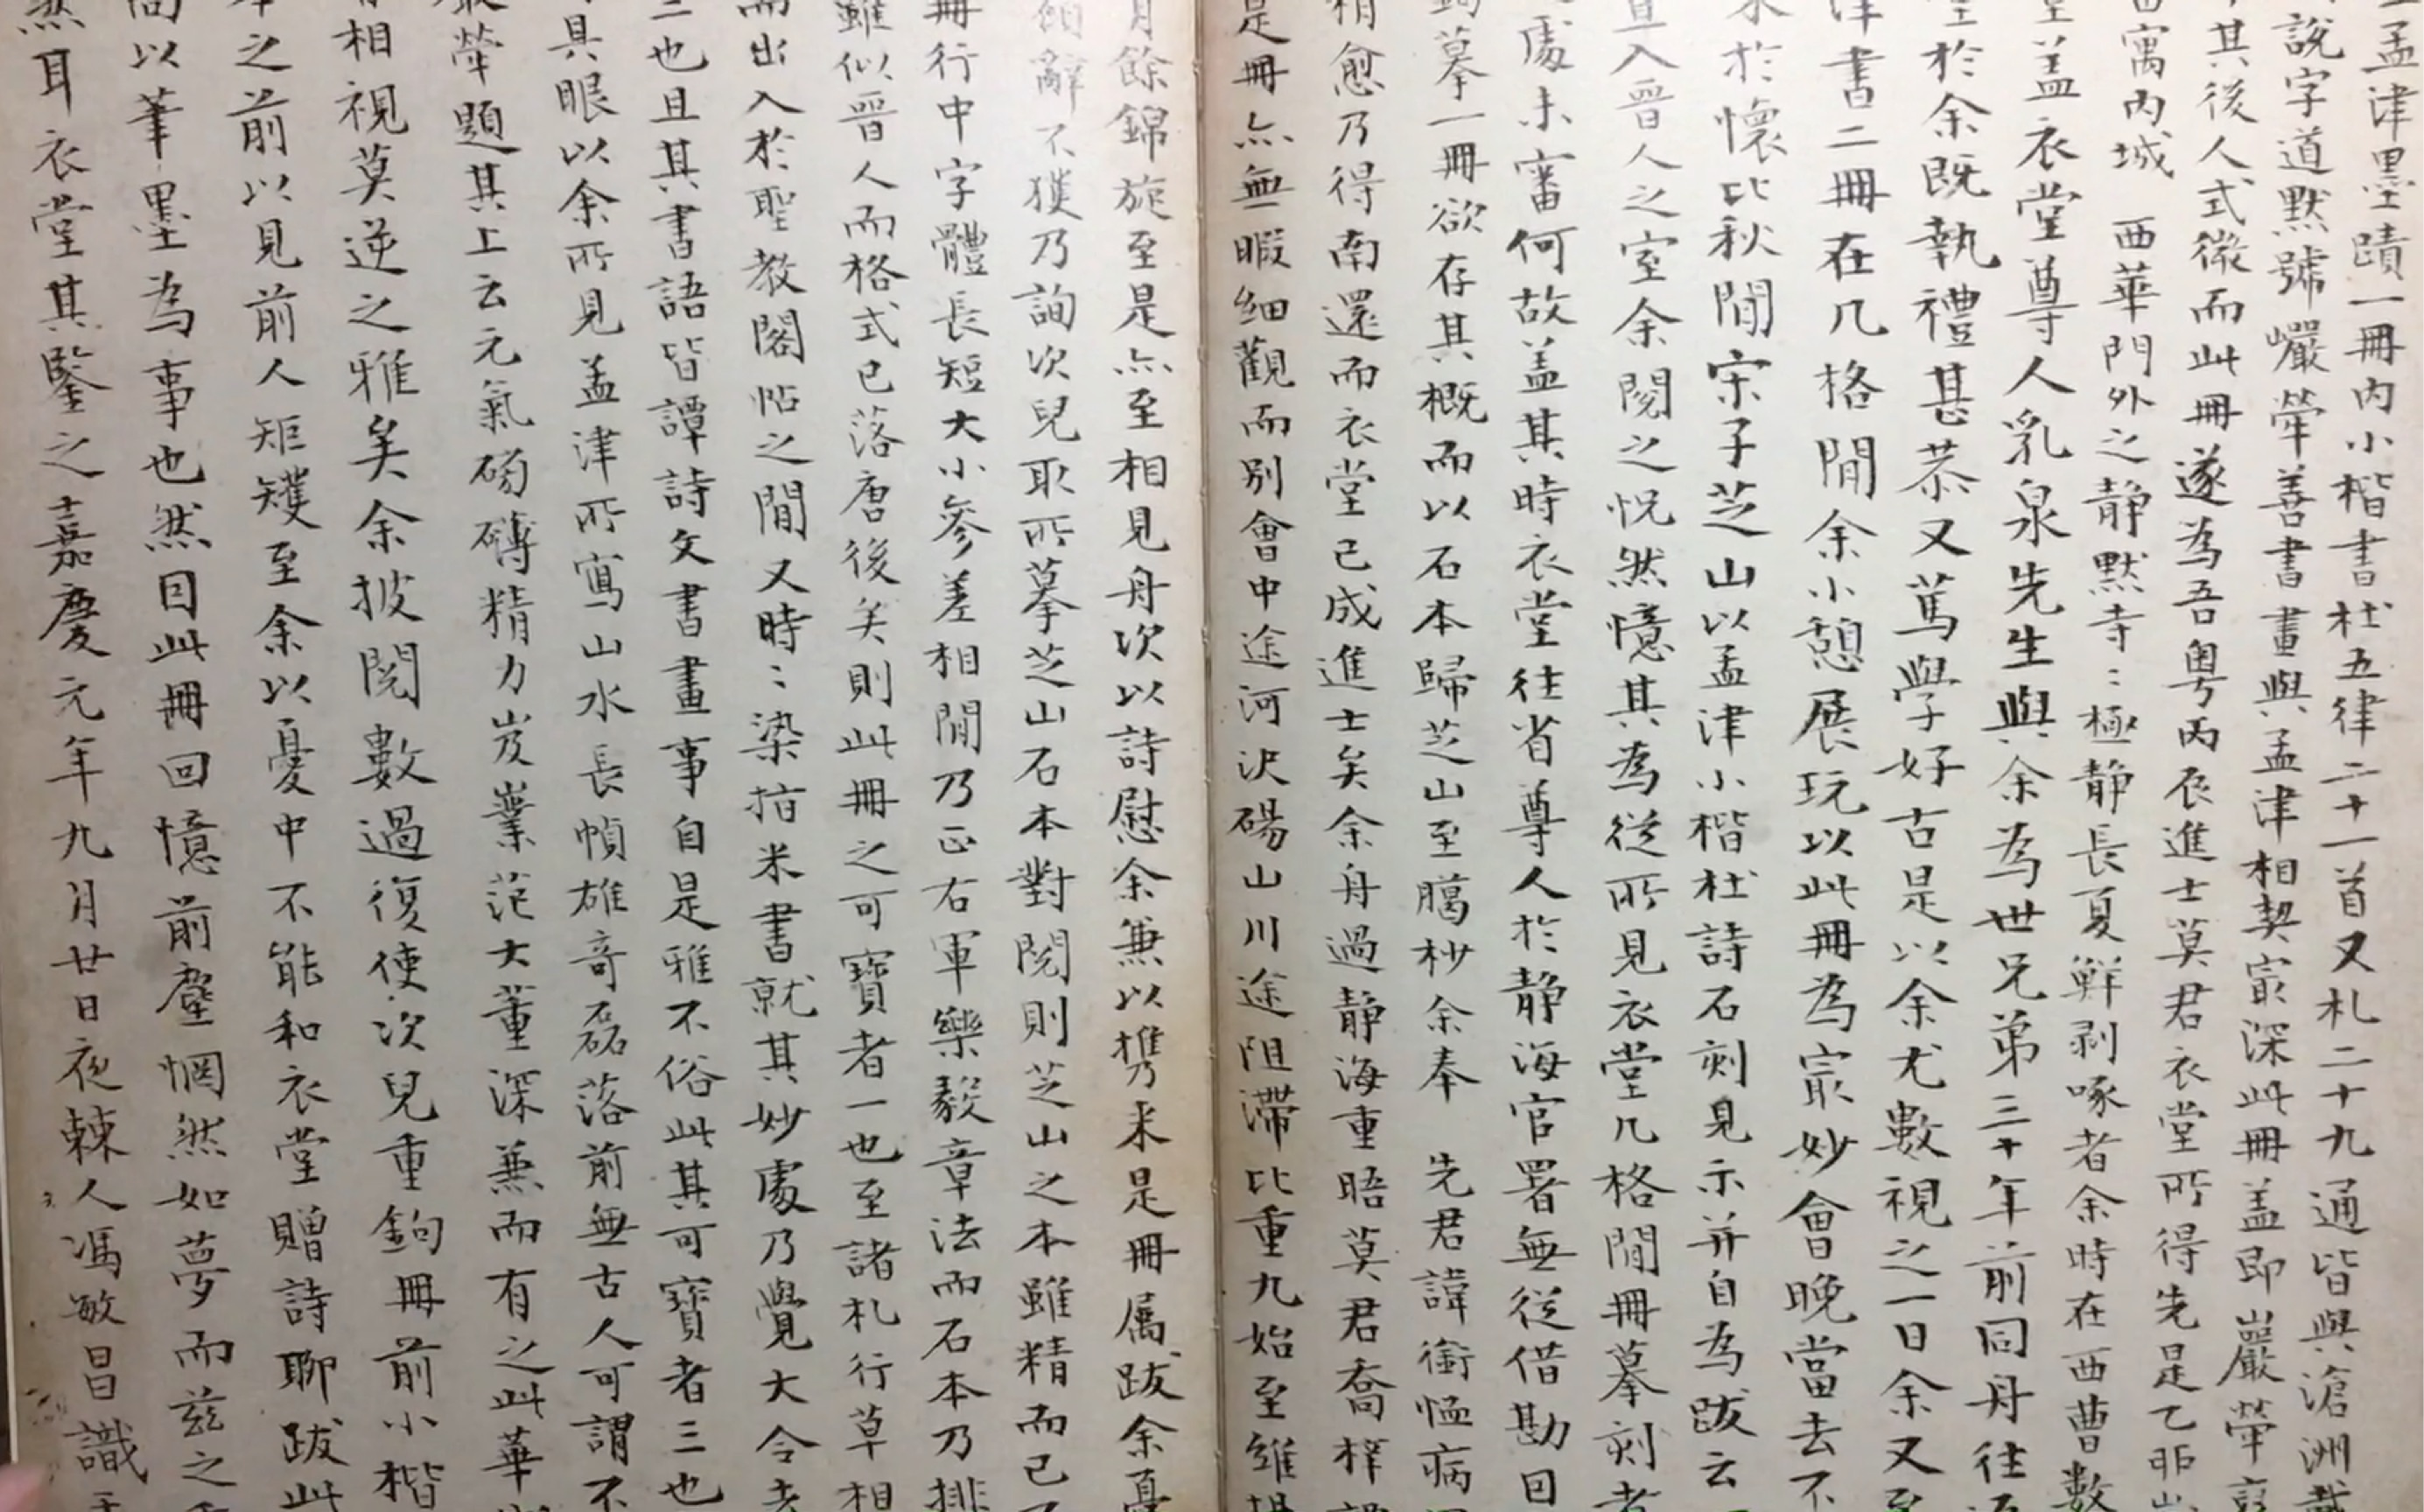 孟津墨蹟一冊内小楷書杜五律二十一首又札二十九通皆與滄洲戴
說字道默號巖犖善書畫與孟津相契㝡深此冊盖即巖犖裏
其後人式微而此冊遂為吾粤丙辰進士莫君衣堂所得先是乙卯
寓内城 西華門外之静默寺〻極静長夏鮮剥啄者余時在西曹數
盖衣堂尊人乳泉先生與余為世兄弟三十年前同舟往
於余既執禮甚恭又篤學好古是以余尤數視之一日余又至
津書二冊在几格間余小憩展玩以此冊為㝡妙會日晚當去不
於懷比秋間宋子芝山以孟津小楷杜詩石刻見示并自為跋云
直入晋人之室余閱之怳然憶其為從所見衣堂几格間冊摹刻者
處未審何故盖其時衣堂往省尊人於静海官署無從借勘因
鉤摹一冊欲存其概而以石本歸芝山至臈杪余奉 先君諱銜恤病
稍愈乃得南還而衣堂已成進士矣余舟過静海重晤莫君喬梓
是冊亦無暇细觀而别會中途河决碭山川途阻滯比重九始至維揚
月餘錦旋至是亦至相見舟次以詩慰余兼以攜来是冊属跋余憂
辭不獲乃詢次兒取所摹芝山石本對閱則芝山之本雖精而已
冊行中字體長短大小參差相間乃正右軍樂毅章法而石本乃排
雖似晋人而格式已落唐後矣則此冊之可寳者一也至諸札行草相
而出入於聖教閣帖之間又時〻染指米書就其妙處乃覺大令去
二也且其書語皆譚詩文書畫事自是雅不俗此其可寳者三也
具眼以余所見孟津所寫山水長幀雄奇磊落前無古人可謂不
犖題其上云元氣磅礴精力岌業范大董深兼而有之此華
相視莫逆之雅矣余披閱數過復使次兒重鉤冊前小楷
之前以見前人矩矱至余以憂中不能和衣堂贈詩聊跋此
以筆墨為事也然因此冊回憶前塵惘然如夢而兹之
耳衣堂其鑒之嘉慶元年九月廿日夜棘人馮敏昌識